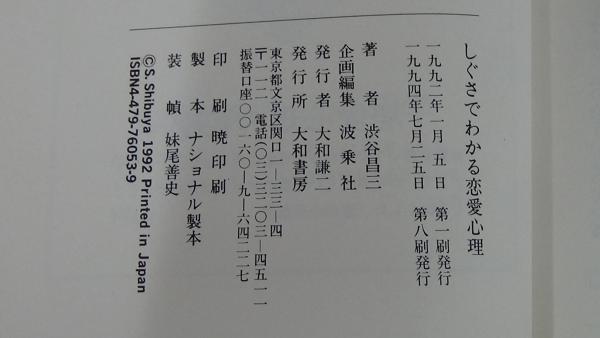 しぐさでわかる恋愛心理
一九九二年一月五日　第一刷発行
一九九四年七月二五日　第八刷発行
著者　渋谷昌三
企画編集　波乗社
発行者　大和謙二
発行所　大和書房
東京都文京区関口一―三三―四
〒一一二　電話(〇三)三二〇三―四五一一
振替口座〇〇一六〇―九―六四二二七
印刷　暁印刷
製本　ナショナル製本
装幀　妹尾善史
©S. Shibuya 1992 Printed in Japan
ISBN4-479-76053-9